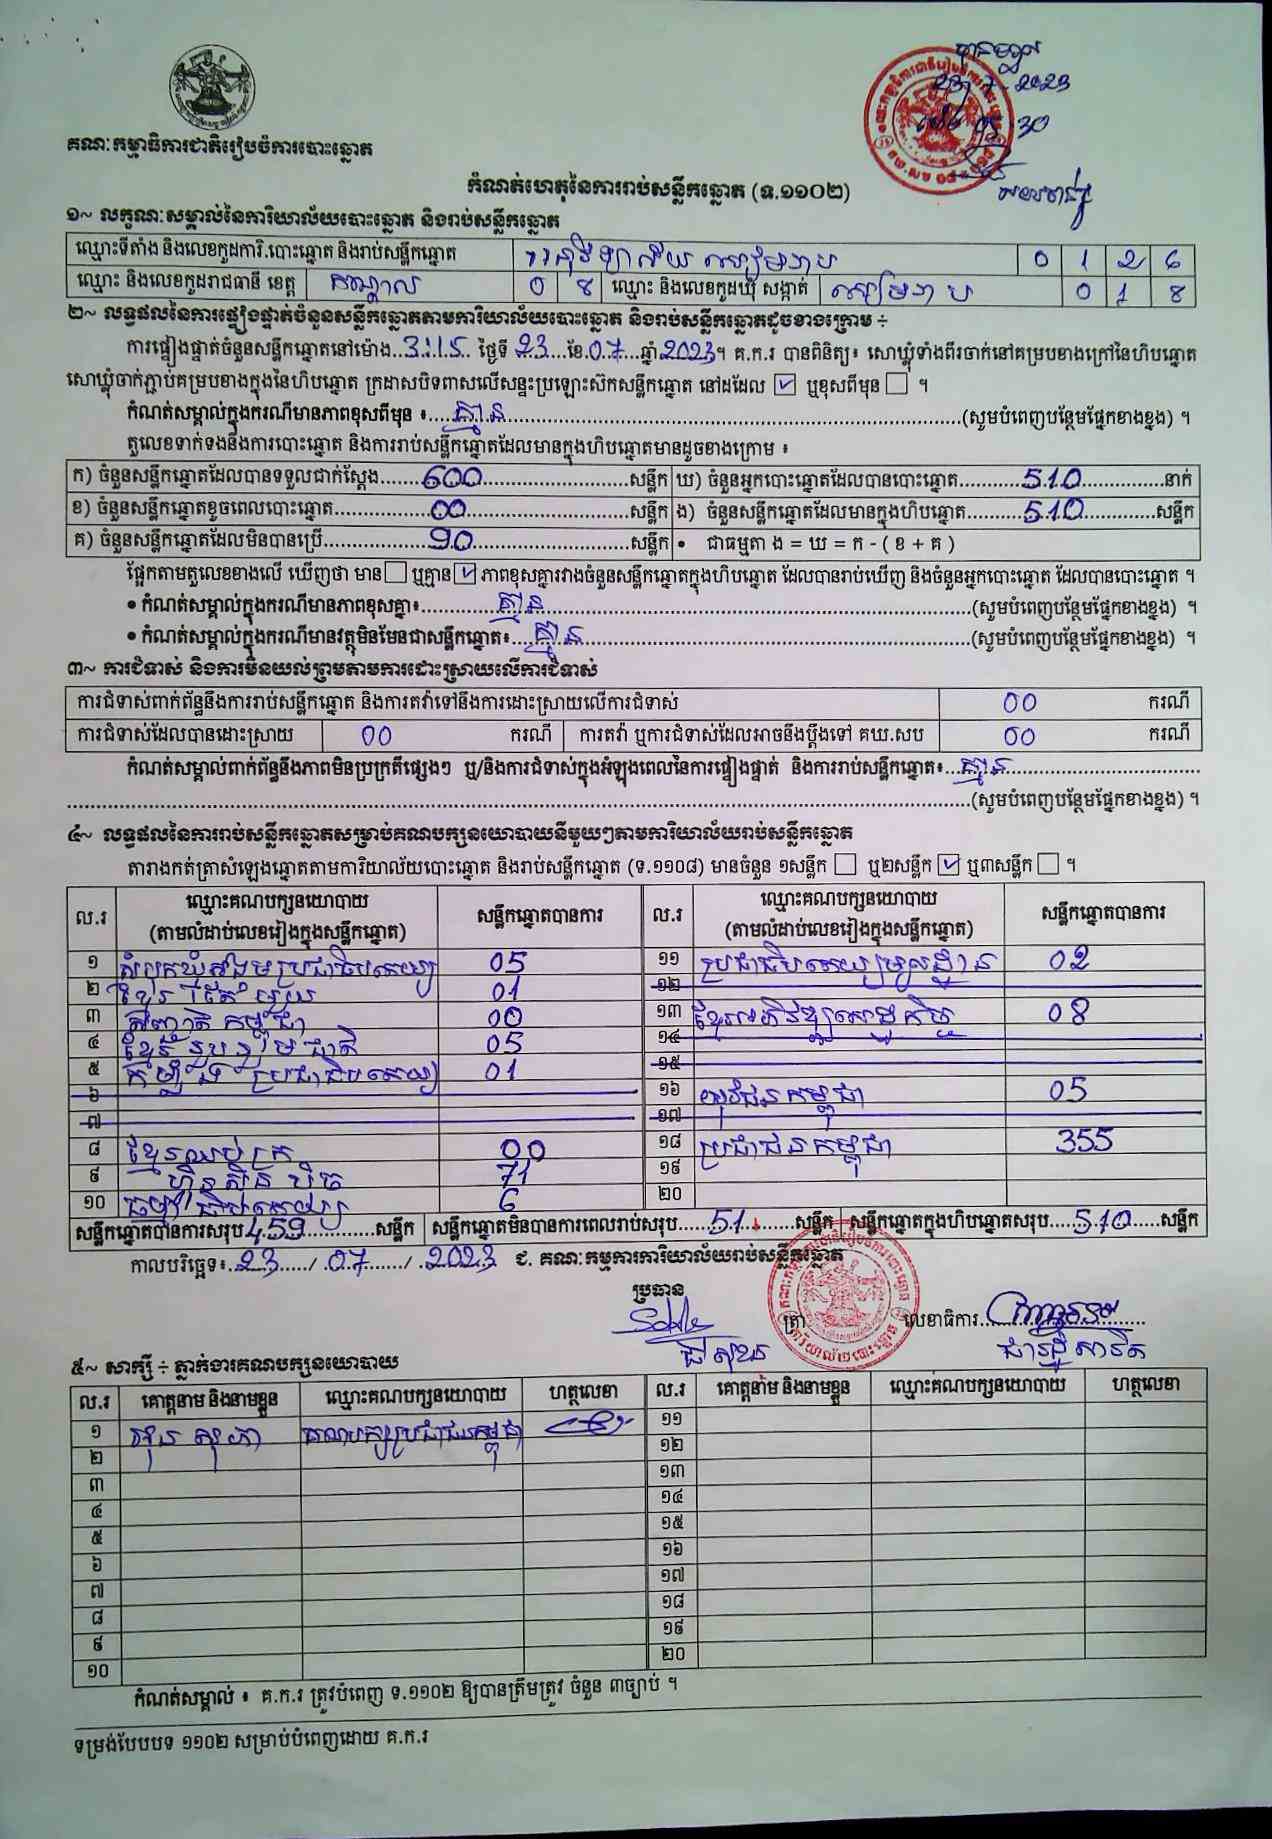 គណៈកម្មាធិការជាតិរៀបចំការបោះឆ្នោត
23.7.2023
កំណត់ហេតុនៃការរាប់សន្លឹកឆ្នោត (ទ.១១០២)
១~ លក្ខណៈសម្គាល់នៃការិយាល័យបោះឆ្នោត និងរាប់សន្លឹកឆ្នោត
ឈ្មោះទីតាំង និងលេខកូដការិ.បោះឆ្នោត និងរាប់សន្លឹកឆ្នោត អនុវិទ្យាល័យ សៀមរាប 0 1 2 6
ឈ្មោះ និងលេខកូដរាជធានី ខេត្ត កណ្តាល 0 8 ឈ្មោះ និងលេខកូដឃុំ សង្កាត់ សៀមរាប 0 1 8
២~ លទ្ធផលនៃការផ្ទៀងផ្ទាត់ចំនួនសន្លឹកឆ្នោតតាមការិយាល័យបោះឆ្នោត និងរាប់សន្លឹកឆ្នោតដូចខាងក្រោម ÷
ការផ្ទៀងផ្ទាត់ចំនួនសន្លឹកឆ្នោតនៅម៉ោង..3:15 ថ្ងៃទី 23...ខែ.07...ឆ្នាំ 2023។ គ.ក.រ បានពិនិត្យ៖ សោឃ្លុំទាំងពីរចាក់នៅគម្របខាងក្រៅនៃហិបឆ្នោត
សោឃ្លុំចាក់ភ្ជាប់គម្របខាងក្នុងនៃហិបឆ្នោត ក្រដាសបិទពាសលើសន្ទះប្រឡោះស៊កសន្លឹកឆ្នោត នៅដដែល ☑ ឬខុសពីមុន ☐ ។
កំណត់សម្គាល់ក្នុងករណីមានភាពខុសពីមុន ៖....គ្មាន....(សូមបំពេញបន្ថែមផ្នែកខាងខ្នង) ។
តួលេខទាក់ទងនឹងការបោះឆ្នោត និងការរាប់សន្លឹកឆ្នោតដែលមានក្នុងហិបឆ្នោតមានដូចខាងក្រោម ៖
ក) ចំនួនសន្លឹកឆ្នោតដែលបានទទួលជាក់ស្តែង.......600.......សន្លឹក ឃ) ចំនួនអ្នកបោះឆ្នោតដែលបានបោះឆ្នោត...........510...........នាក់
ខ) ចំនួនសន្លឹកឆ្នោតខូចពេលបោះឆ្នោត...........00...........សន្លឹក ង) ចំនួនសន្លឹកឆ្នោតដែលមានក្នុងហិបឆ្នោត.........510.........សន្លឹក
គ) ចំនួនសន្លឹកឆ្នោតដែលមិនបានប្រើ...........90...........សន្លឹក • ជាធម្មតា ង = ឃ = ក - ( ខ + គ )
ផ្អែកតាមតួលេខខាងលើ ឃើញថា មាន ☐ ឬគ្មាន ☑ ភាពខុសគ្នារវាងចំនួនសន្លឹកឆ្នោតក្នុងហិបឆ្នោត ដែលបានរាប់ឃើញ និងចំនួនអ្នកបោះឆ្នោត ដែលបានបោះឆ្នោត ។
• កំណត់សម្គាល់ក្នុងករណីមានភាពខុសគ្នា៖.........គ្មាន.........(សូមបំពេញបន្ថែមផ្នែកខាងខ្នង) ។
• កំណត់សម្គាល់ក្នុងករណីមានវត្ថុមិនមែនជាសន្លឹកឆ្នោត៖....គ្មាន....(សូមបំពេញបន្ថែមផ្នែកខាងខ្នង) ។
៣~ ការជំទាស់ និងការមិនយល់ព្រមតាមការដោះស្រាយលើការជំទាស់
ការជំទាស់ពាក់ព័ន្ធនឹងការរាប់សន្លឹកឆ្នោត និងការតវ៉ាទៅនឹងការដោះស្រាយលើការជំទាស់ 00 ករណី
ការជំទាស់ដែលបានដោះស្រាយ 00 ករណី ការតវ៉ា ឬការជំទាស់ដែលអាចនឹងប្តឹងទៅ គឃ.សប 00 ករណី
កំណត់សម្គាល់ពាក់ព័ន្ធនឹងភាពមិនប្រក្រតីផ្សេងៗ ឬ/និងការជំទាស់ក្នុងអំឡុងពេលនៃការផ្ទៀងផ្ទាត់ និងការរាប់សន្លឹកឆ្នោត៖...គ្មាន....
....(សូមបំពេញបន្ថែមផ្នែកខាងខ្នង) ។
៤~ លទ្ធផលនៃការរាប់សន្លឹកឆ្នោតសម្រាប់គណបក្សនយោបាយនីមួយៗតាមការិយាល័យរាប់សន្លឹកឆ្នោត
តារាងកត់ត្រាសំឡេងឆ្នោតតាមការិយាល័យបោះឆ្នោត និងរាប់សន្លឹកឆ្នោត (ទ.១១០៨) មានចំនួន ១សន្លឹក ☐ ឬ២សន្លឹក ☑ ឬ៣សន្លឹក ☐ ។
ល.រ ឈ្មោះគណបក្សនយោបាយ (តាមលំដាប់លេខរៀងក្នុងសន្លឹកឆ្នោត) សន្លឹកឆ្នោតបានការ ល.រ ឈ្មោះគណបក្សនយោបាយ (តាមលំដាប់លេខរៀងក្នុងសន្លឹកឆ្នោត) សន្លឹកឆ្នោតបានការ
១ សំបុកឃ្មុំសង្គមប្រជាធិបតេយ្យ 05 ១១ ប្រជាធិបតេយ្យមូលដ្ឋាន 02
២ ខ្មែរ តែមួយ 01 ១២
៣ ជាតិ កម្ពុជា 00 ១៣ ខ្មែរអភិវឌ្ឍសេដ្ឋកិច្ច 08
៤ ខ្មែរ រួបរួម ជាតិ 05 ១៤
៥ កម្លាំង ប្រជាធិបតេយ្យ 01 ១៥
៦ ១៦ យុវជនកម្ពុជា 05
៧ ១៧
៨ ខ្មែរឈប់ក្រ 00 ១៨ ប្រជាជនកម្ពុជា 355
៩ ហ៊្វុនស៊ិនប៉ិច 71 ១៩
១០ ធម្មាធិបតេយ្យ 6 ២០
សន្លឹកឆ្នោតបានការសរុប 459.............សន្លឹក សន្លឹកឆ្នោតមិនបានការពេលរាប់សរុប......51.......សន្លឹក សន្លឹកឆ្នោតក្នុងហិបឆ្នោតសរុប.....510.....សន្លឹក
កាលបរិច្ឆេទ៖..23..../.07....../ .2023 ជ. គណៈកម្មការការិយាល័យរាប់សន្លឹកឆ្នោត
ប្រធាន
ត្រា លេខាធិការ
៥~ សាក្សី ÷ ភ្នាក់ងារគណបក្សនយោបាយ
ល.រ គោត្តនាម និងនាមខ្លួន ឈ្មោះគណបក្សនយោបាយ ហត្ថលេខា ល.រ គោត្តនាម និងនាមខ្លួន ឈ្មោះគណបក្សនយោបាយ ហត្ថលេខា
១ អ៊ុន សុភា គណបក្សប្រជាជនកម្ពុជា ១១
២ ១២
៣ ១៣
៤ ១៤
៥ ១៥
៦ ១៦
៧ ១៧
៨ ១៨
៩ ១៩
១០ ២០
កំណត់សម្គាល់ ៖ គ.ក.រ ត្រូវបំពេញ ទ.១១០២ ឱ្យបានត្រឹមត្រូវ ចំនួន ៣ច្បាប់ ។
ទម្រង់បែបបទ ១១០២ សម្រាប់បំពេញដោយ គ.ក.រ